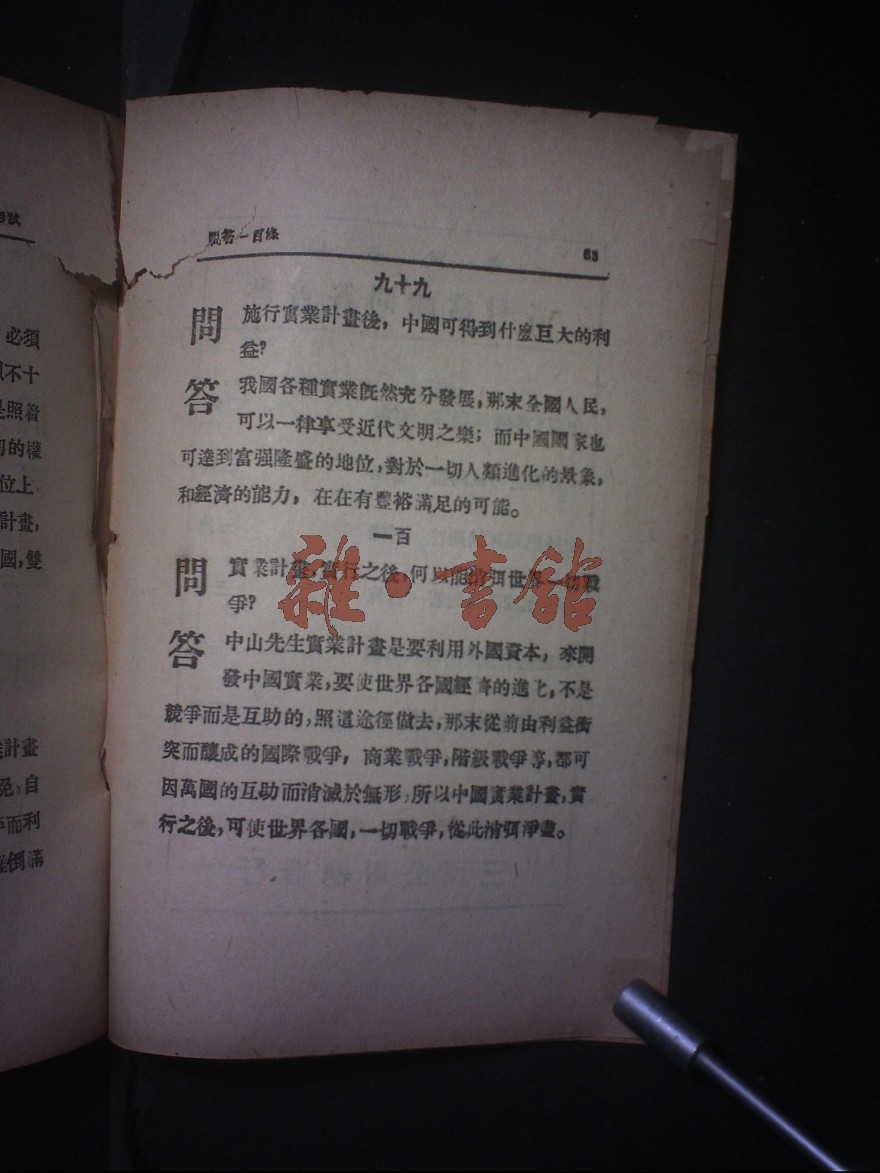 考試
必須
不十
是照着
切的權
位上
計畫,
國,雙
計畫
免,自
而利
倒滿
問答一百條 63
九十九
問 施行實業計畫後,中國可得到什麼巨大的利
益?
答 我國各種實業旣然充分發展,那末全國人民,
可以一律享受近代文明之樂;而中國國家也
可達到富强隆盛的地位,對於一切人類進化的景象,
和經濟的能力,在在有豐裕滿足的可能。
一百
問 實業計畫,實行之後,何以能消弭世界一切戰
爭?
答 中山先生實業計畫是要利用外國資本,來開
發中國實業,要使世界各國經濟的進化,不是
競爭而是互助的,照這途徑做去,那末從前由利益衝
突而釀成的國際戰爭,商業戰爭,階級戰爭等,都可
因萬國的互助而消滅於無形,所以中國實業計畫,實
行之後,可使世界各國,一切戰爭,從此消弭淨盡。
雜·書館